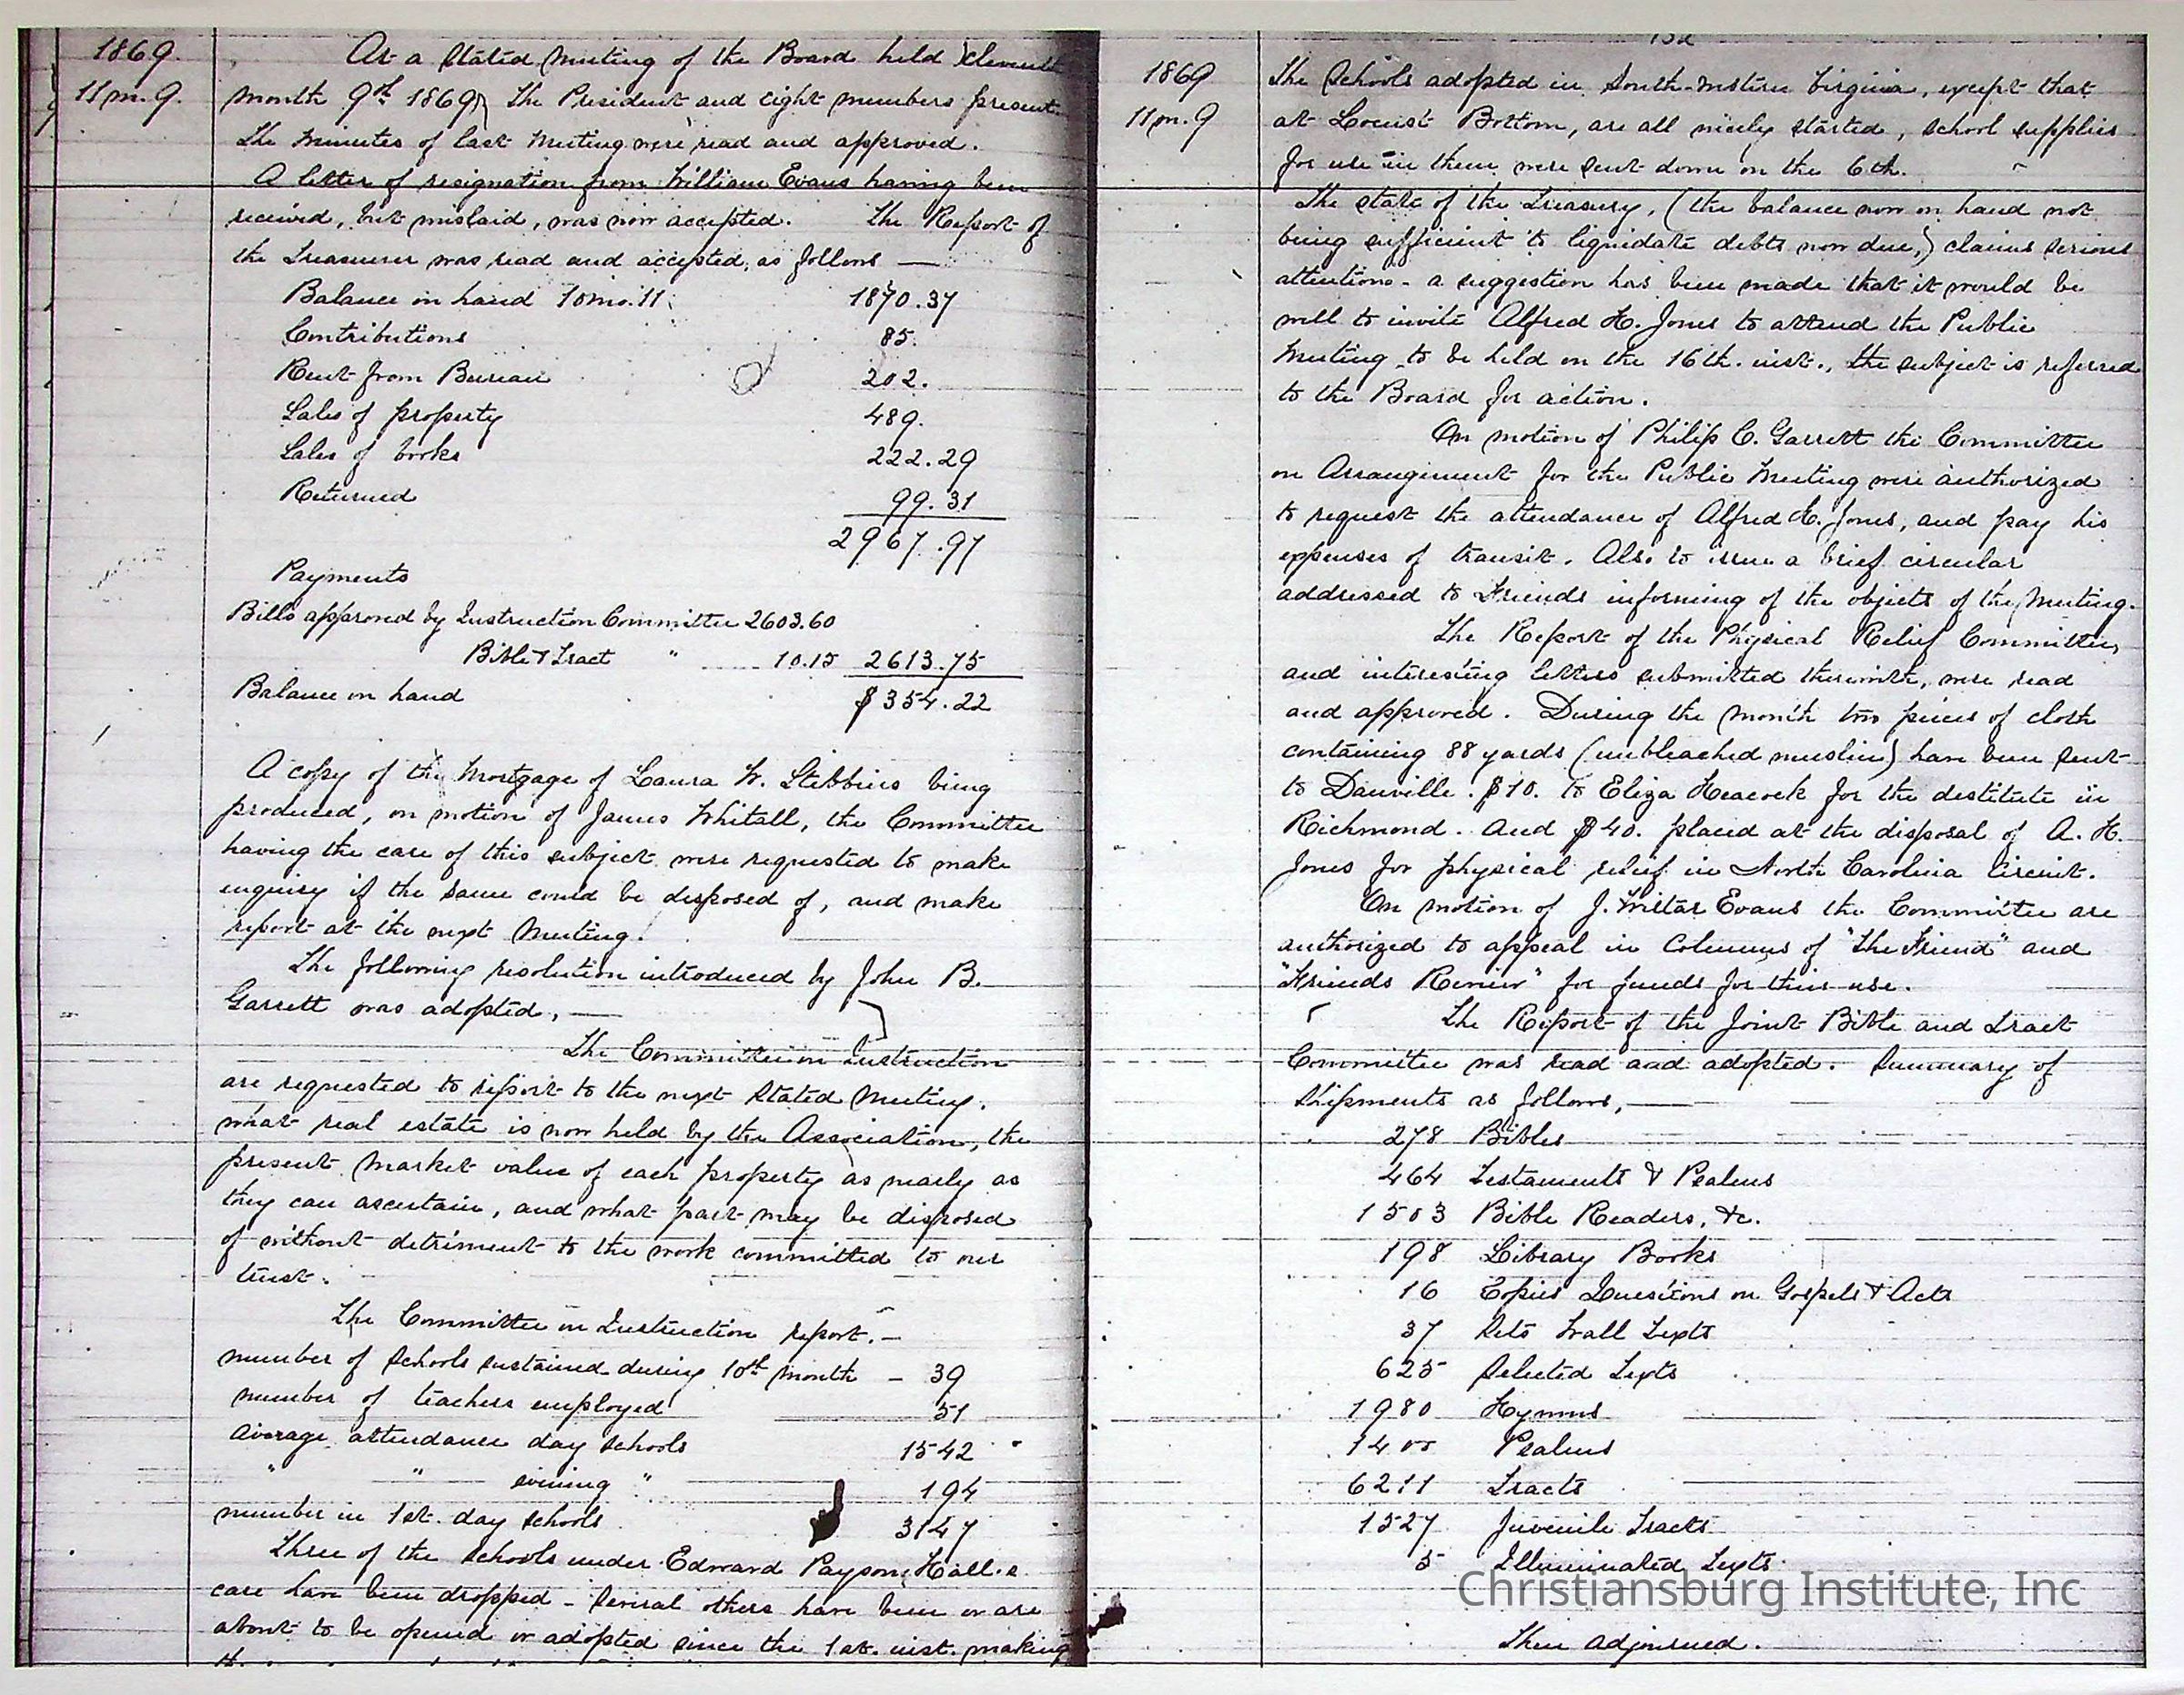 1869.
11 m. 9.
At a Stated Meeting of the Board held Eleventh
month 9th 1869, The President and eight members present.
The Minutes of last Meeting were read and approved.
A letter of resignation from William Evans having been
received, but mislaid, was now accepted. The Report of
the Treasurer was read and accepted, as follows —
Balance on hand 10mo. 11. 1870.37
Contributions 85.
Rent from Bureau 202.
Sales of property 489.
Sales of books 222.29
Returned 99.31
2967.97
Payments
Bills approved by Instruction Committee 2603.60
Bible & Tract " 10.15 2613.75
Balance on hand $354.22
A copy of the Mortgage of Laura W. Stebbins being
produced, on motion of James Whitall, the Committee
having the care of this subject were requested to make
inquiry if the same could be disposed of, and make
report at the next Meeting.
The following resolution introduced by John B.
Garrett was adopted, —
The Committee on Instruction
are requested to report to the next Stated Meeting,
what real estate is now held by the Association, the
present market value of each property as nearly as
they can ascertain, and what part may be disposed
of without detriment to the work committed to our
trust.
The Committee on Instruction report. —
number of Schools sustained during 10th month — 39
number of teachers employed 51
average attendance day schools 1542
" " evening " 194
number in 1st. day schools 3147
Three of the schools under Edward Payson Hall's
care have been dropped — several others have been or are
about to be opened or adopted since the 1st. inst. making
1869
11 m. 9
The Schools adopted in South-western Virginia, except that
at Locust Bottom, are all nicely started, school supplies
for use in them were sent down on the 6th.
The state of the Treasury, (the balance now on hand not
being sufficient to liquidate debts now due,) claims serious
attention - a suggestion has been made that it would be
well to invite Alfred H. Jones to attend the Public
Meeting to be held on the 16th. inst., the subject is referred
to the Board for action.
On motion of Philip C. Garrett the Committee
on Arrangement for the Public Meeting were authorized
to request the attendance of Alfred H. Jones, and pay his
expenses of transit. Also to issue a brief circular
addressed to Friends informing of the objects of the Meeting.
The Report of the Physical Relief Committee,
and interesting letters submitted therewith, were read
and approved. During the month two pieces of cloth
containing 88 yards (unbleached muslin) have been sent
to Danville. $10. to Eliza Heacock for the destitute in
Richmond. And $40. placed at the disposal of A. H.
Jones for physical relief in North Carolina Circuit.
On motion of J. Wistar Evans the Committee are
authorized to appeal in Columns of "The Friend" and
"Friends Review" for funds for their use.
The Report of the Joint Bible and Tract
Committee was read and adopted. Summary of
shipments as follows, —
278 Bibles
464 Testaments & Psalms
1503 Bible Readers, &c.
198 Library Books
16 Copies Questions on Gospels & Acts
37 Sets Wall Texts
625 Selected Texts
1980 Hymns
1400 Psalms
6211 Tracts
1527 Juvenile Tracts
5 Illuminated Texts
Christiansburg Institute, Inc
Then adjourned.